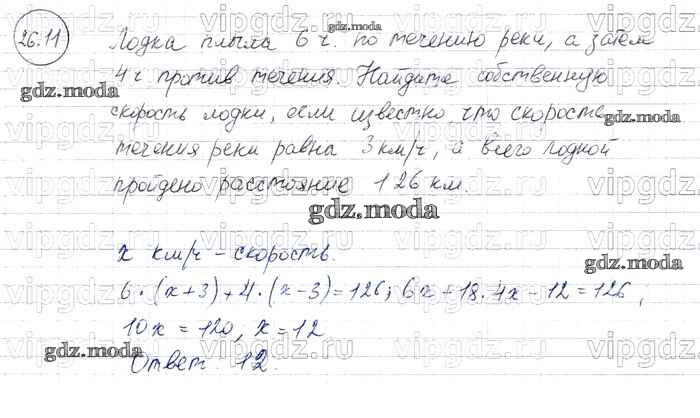 26.11
Лодка плыла 6 ч. по течению реки, а затем
4 ч против течения. Найдите собственную
скорость лодки, если известно, что скорость
течения реки равна 3 км/ч, а всего лодкой
пройдено расстояние 126 км.
x км/ч – скорость.
6·(x+3)+4·(x-3)=126; 6x+18·4x-12=126,
10x=120, x=12
Ответ. 12.
gdz.moda
gdz.moda
gdz.moda
gdz.moda
gdz.moda
gdz.moda
gdz.moda
vipgdz.ru